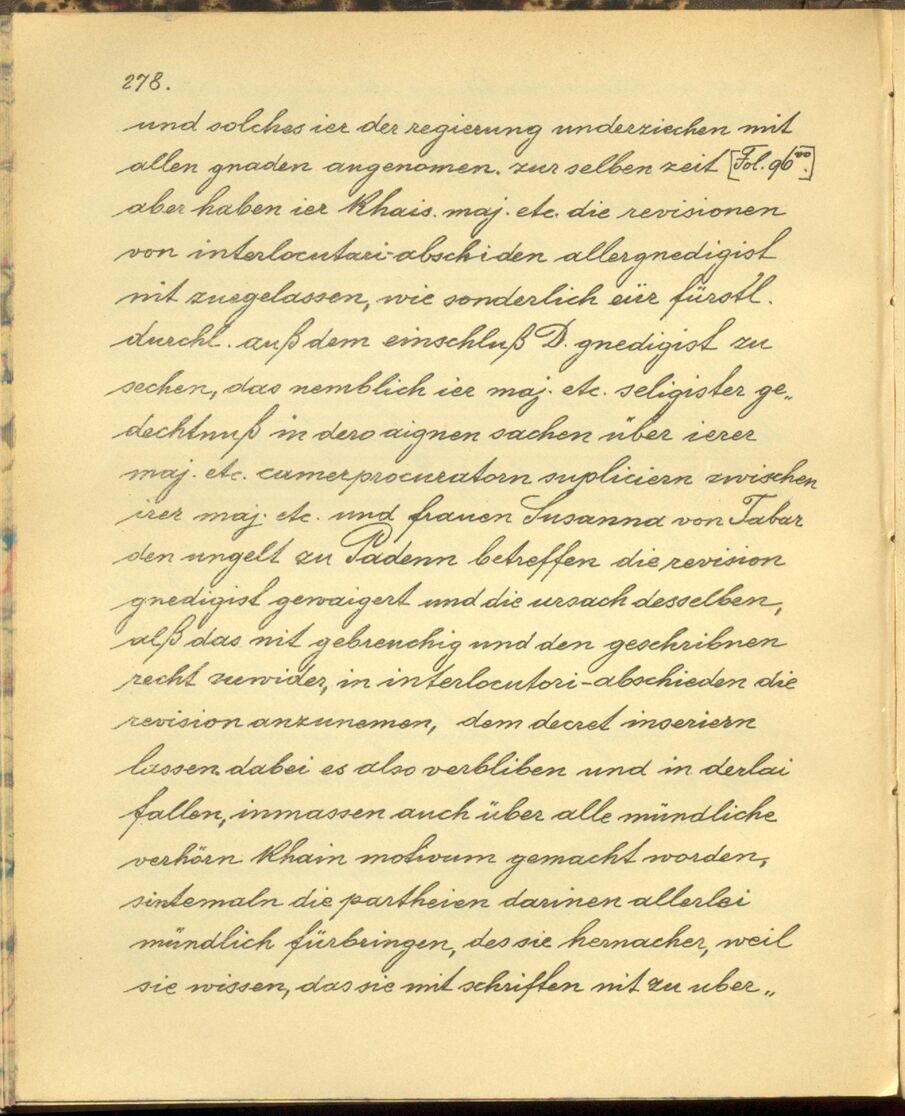 278.
und solches ier der regierung underziechen mit
allen gnaden angenomen. zur selben zeit [Fol. 96 vo.]
aber haben ier Khais. maj. etc. die revisionen
von interlocutari-abschiden allergnedigist
nit zuegelassen, wie sonderlich eür fürstl.
durchl. auß dem einschluß D. gnedigist zu
sechen, das nemblich ier maj. etc. seligister ge„
dechtnuß in dero aignen sachen über ierer
maj. etc. camerprocuratorn supliciern zwischen
irer maj. etc. und frauen Susanna von Tabar
den ungelt zu Padenn betreffen die revision
gnedigist gewaigert und die ursach desselben,
alß das nit gebreuchig und den geschribnen
recht zuwider, in interlocutori-abschieden die
revision anzunemen, dem decret inseriern
lassen dabei es also verbliben und in derlai
fallen, inmassen auch über alle mündliche
verhörn Khain motivum gemacht worden,
sintemaln die partheien darinen allerlei
mündlich fürbringen, des sie hernacher, weil
sie wissen, das sie mit schriften nit zu uber„